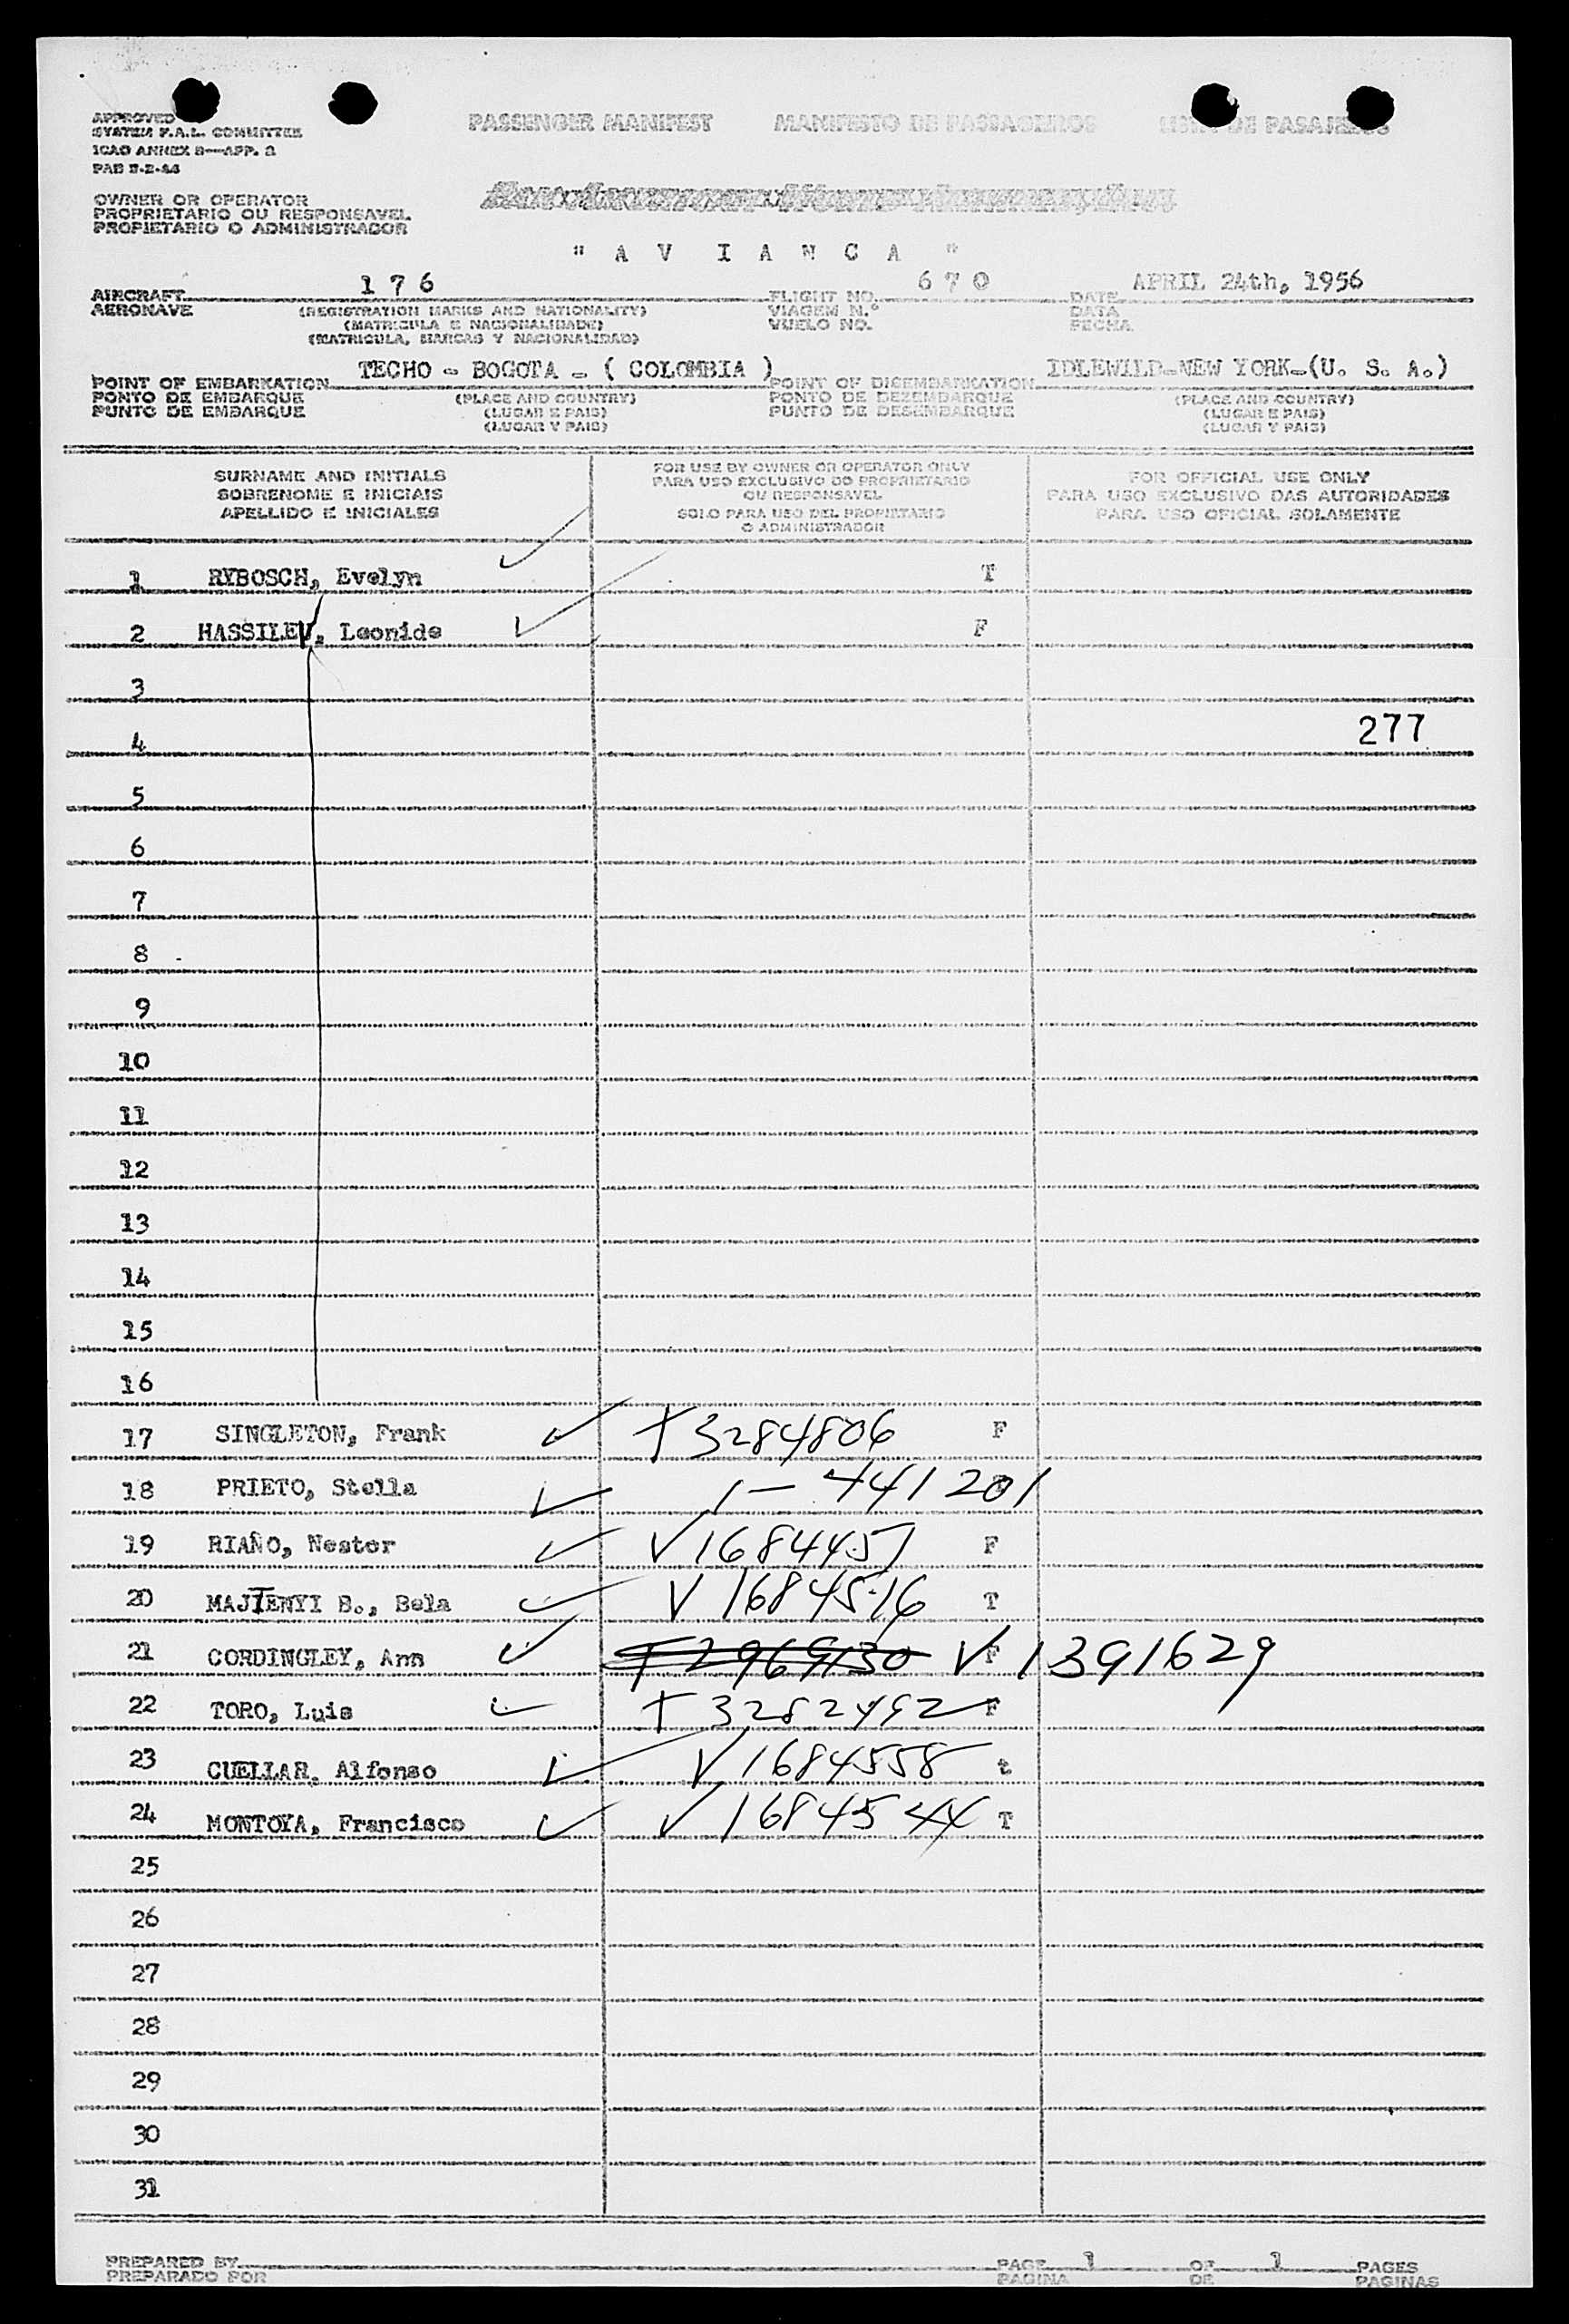 APPROVED
SYSTEM F.A.L. COMMITTEE
ICAO ANNEX 9—APP. 2
PASSENGER MANIFEST MANIFESTO DE PASSAGEIROS LISTA DE PASAJEROS
OWNER OR OPERATOR
PROPRIETARIO OU RESPONSAVEL
PROPIETARIO O ADMINISTRADOR
" A V I A N C A "
AIRCRAFT 176 FLIGHT NO. 670 DATE APRIL 24th, 1956
AERONAVE (REGISTRATION MARKS AND NATIONALITY) VIAGEM N.° DATA
(MATRICULA E NACIONALIDADE) VUELO NO. FECHA
(MATRICULA, MARCAS Y NACIONALIDAD)
POINT OF EMBARKATION TECHO - BOGOTA - ( COLOMBIA ) POINT OF DISEMBARKATION IDLEWILD-NEW YORK-(U. S. A.)
PONTO DE EMBARQUE (PLACE AND COUNTRY) PONTO DE DEZEMBARQUE (PLACE AND COUNTRY)
PUNTO DE EMBARQUE (LUGAR E PAIS) PUNTO DE DESEMBARQUE (LUGAR E PAIS)
(LUGAR Y PAIS) (LUGAR Y PAIS)
SURNAME AND INITIALS FOR USE BY OWNER OR OPERATOR ONLY FOR OFFICIAL USE ONLY
SOBRENOME E INICIAIS PARA USO EXCLUSIVO DO PROPRIETARIO PARA USO EXCLUSIVO DAS AUTORIDADES
OU RESPONSAVEL
APELLIDO E INICIALES SOLO PARA USO DEL PROPIETARIO PARA USO OFICIAL SOLAMENTE
O ADMINISTRADOR
1 RYBOSCH, Evelyn T
2 HASSILEV, Leonide F
3
4 277
5
6
7
8
9
10
11
12
13
14
15
16
17 SINGLETON, Frank T 3284806 F
18 PRIETO, Stella 1- 441201
19 RIAÑO, Nestor V 1684451 F
20 MAJTENYI B., Bela V 1684516 T
21 CORDINGLEY, Ann T 2969130 F V 1391629
22 TORO, Luis T 3282492 F
23 CUELLAR, Alfonso V 1684558 t
24 MONTOYA, Francisco V 1684544 T
25
26
27
28
29
30
31
PREPARED BY PAGE 1 OF 1 PAGES
PREPARADO POR PAGINA DE PAGINAS